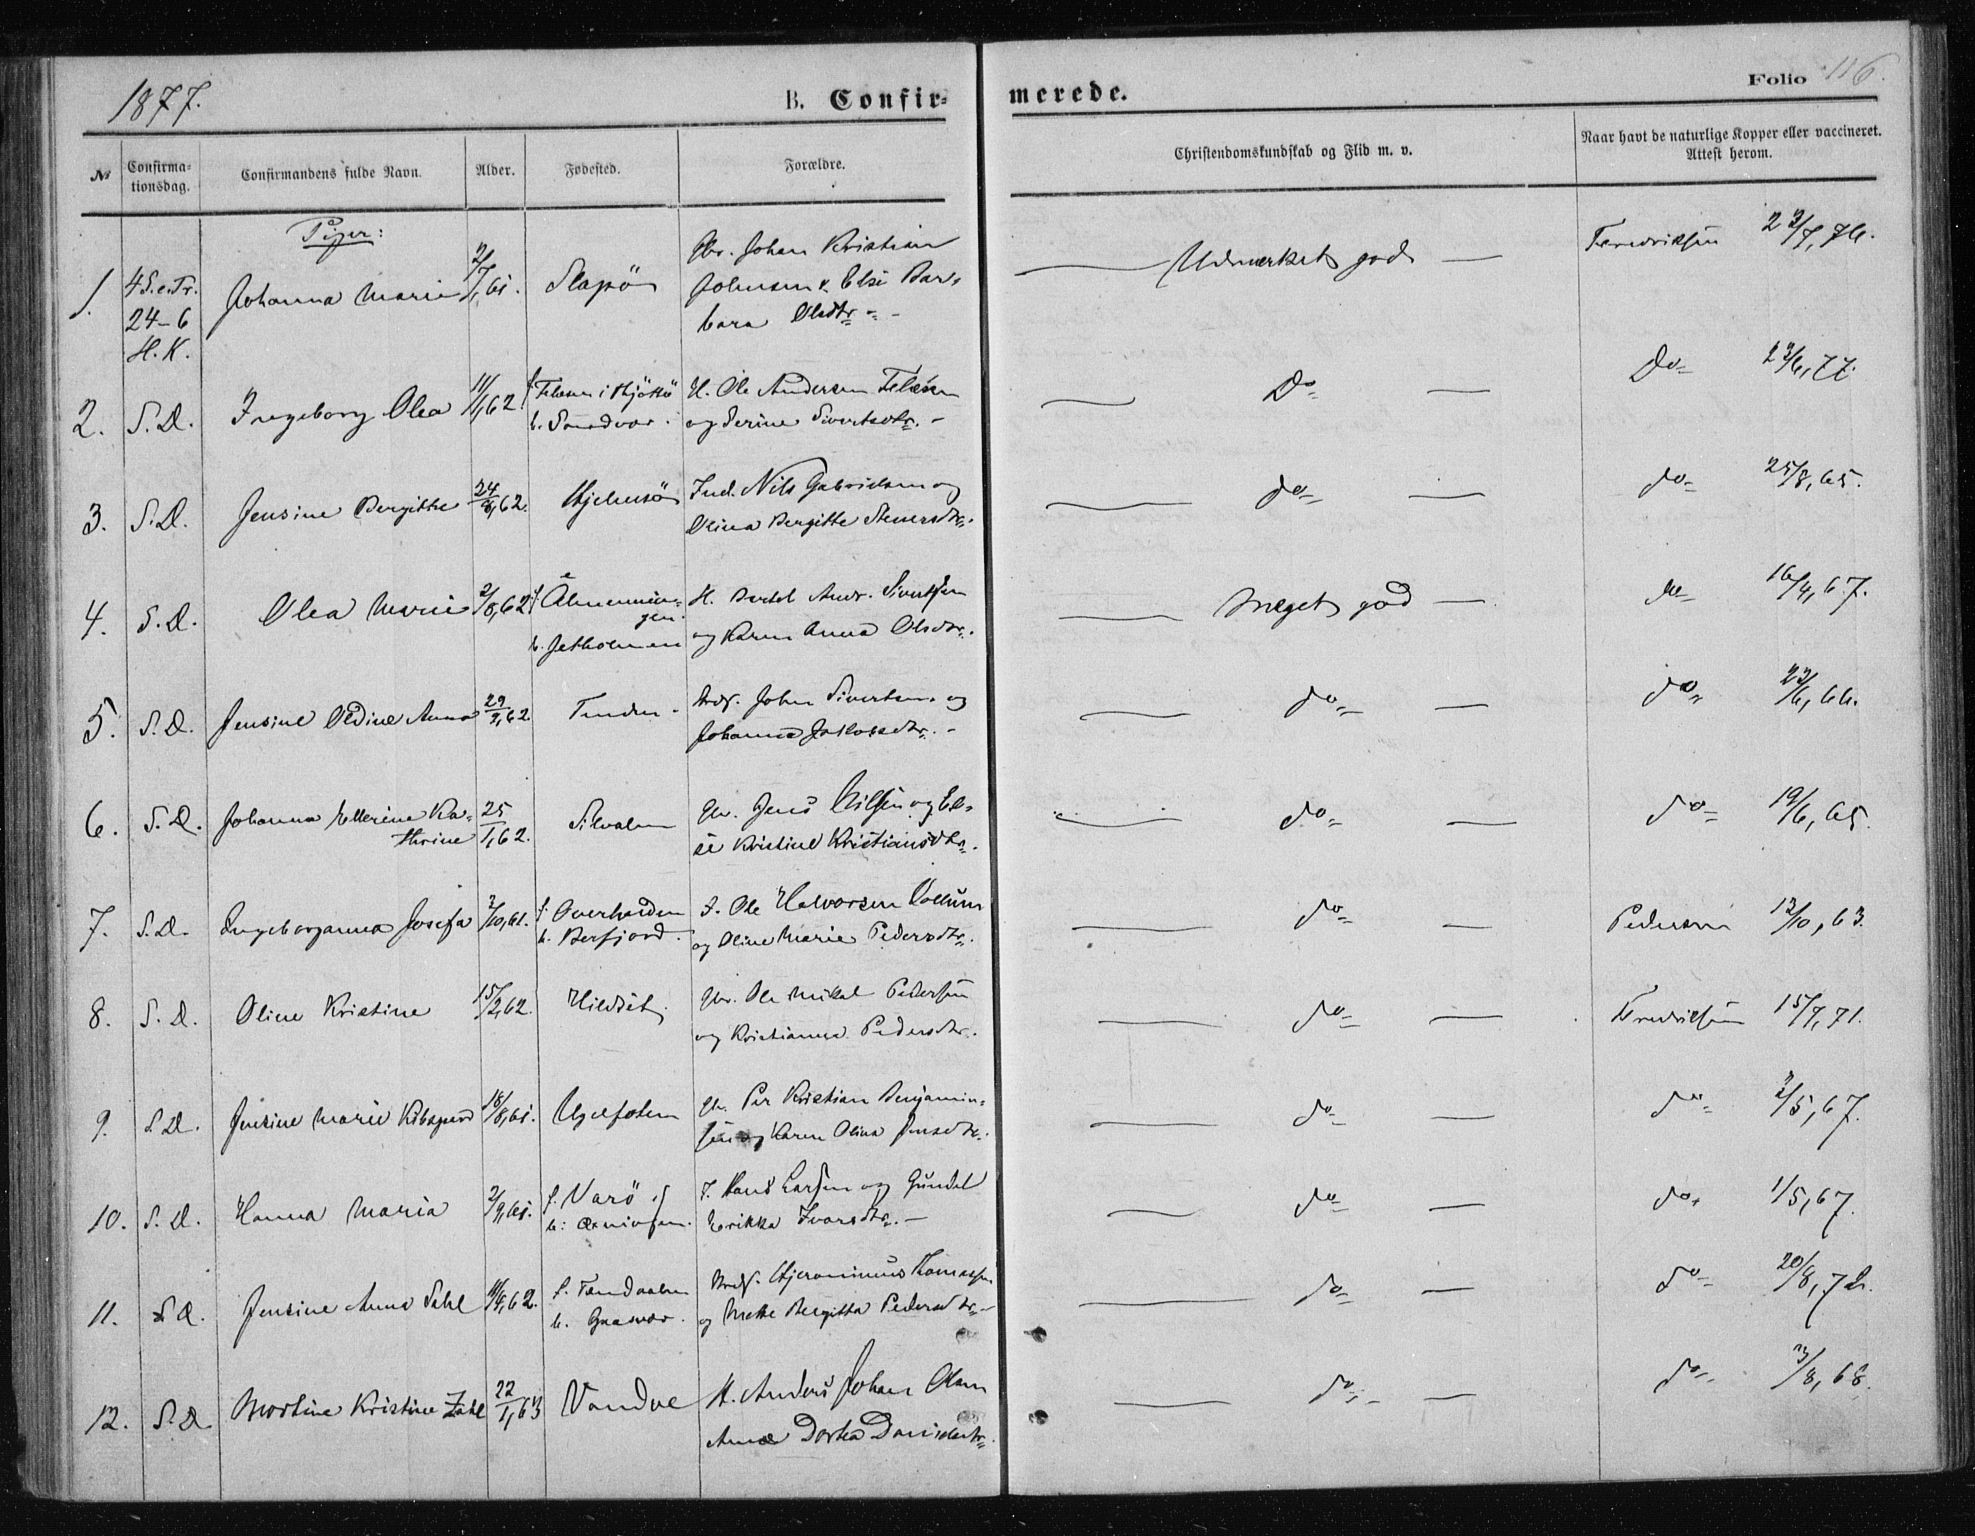 1877.
B. Confir-
merede.
Folio 116.
No
Confirma-
tionsdag.
Confirmandens fulde Navn.
Alder.
Fødested.
Forældre.
Christendomskundskab og Flid m. v.
Naar havt de naturlige Kopper eller vaccineret.
Attest herom.
Piger:
1. 4 S. e. Tr. Johanna Marie 2/7,61. Slapö Gbr. Johan Kristian Udmærket god Fredriksen 23/7,76.
24-6 Johnsen & Else Bar-
H. K. bara Olsdtr.
2. S. D. Ingeborg Olea 11/1,62. H. Ole Andersen Do 23/6,77.
b. Sandvær. og Serine Sivertsdtr. Do
3. S. D. Jensine Bergitte 24/3,62. Hjelmsö Ind. Nils Gabrielsen og do do 25/8,65.
Olina Bergitte Stenersdtr.
4. S. D. Olea Marie 2/8,62. H. Bertel Andr. Sivertsen Meget god do 16/4,67.
b. Jetholmen og Karen Anna Olsdtr.
5. S. D. Jensine Oldine Anna 29/9,62. John Sivertsen og do do 23/6,66.
Johanna Jakobsdtr.
6. S. D. Johanna Ellerine Ka- 25/1,62. Silvalen Gbr. Jens Nilsen og El- do do 19/6,65.
thrine se Kristine Kristiansdtr.
7. S. D. Ingeborganna Josefa 2/10,61. f. Overhalden Ole Halvorsen do Pedersen 13/10,63.
b. Berfjord. og Oline Marie Pedersdtr.
8. S. D. Oline Kristine 15/2,62. Hildset Gbr. Ole Mikal Pedersen do Fredriksen 15/7,71.
og Kristianna Pedersdtr.
9. S. D. Jensine Marie 18/8,61. Per Kristian Benjamin- do do 2/5,67.
sen og Karen Olina Jensdtr.
10. S. D. Hanna Maria 2/9,61. f. Varö Hans Larsen og Gundel do do 1/5,67.
Erikka Ivarsdtr.
11. S. D. Jensine Anna Dahl 11/4,62. Hjeronimus Thomassen do do 20/8,72.
b. Gaasvær. og Mette Bergitta Pedersdtr.
12. S. D. Martine Kristine Zahl 22/1,63 Vandve H. Anders Johan Olsen do do 3/8,68.
Anne Dorthea Danielsdtr.